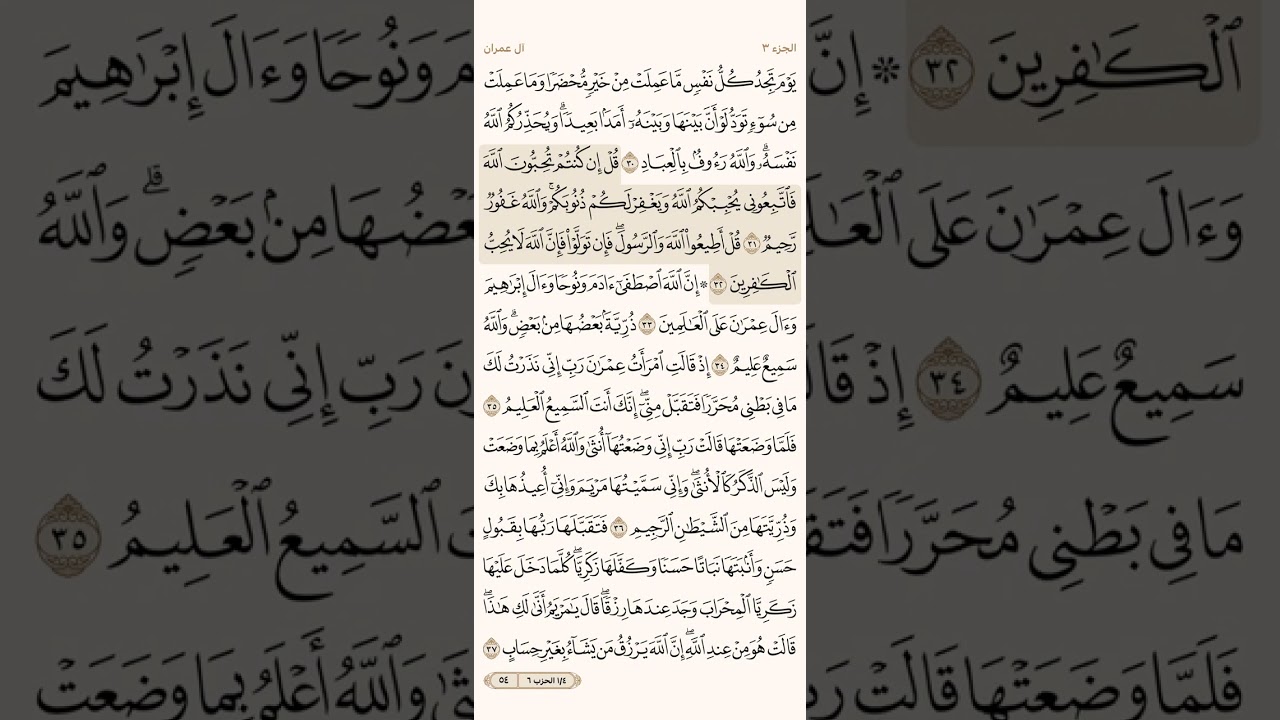 الجزء ٣
آل عمران
يَوْمَ تَجِدُ كُلُّ نَفْسٍ مَّا عَمِلَتْ مِنْ خَيْرٍ مُّحْضَرًا وَمَا عَمِلَتْ
مِن سُوٓءٍ تَوَدُّ لَوْ أَنَّ بَيْنَهَا وَبَيْنَهُۥٓ أَمَدَۢا بَعِيدًاۗ وَيُحَذِّرُكُمُ ٱللَّهُ
نَفْسَهُۥۗ وَٱللَّهُ رَءُوفُۢ بِٱلْعِبَادِ ٣٠ قُلْ إِن كُنتُمْ تُحِبُّونَ ٱللَّهَ
فَٱتَّبِعُونِى يُحْبِبْكُمُ ٱللَّهُ وَيَغْفِرْ لَكُمْ ذُنُوبَكُمْۚ وَٱللَّهُ غَفُورٌ
رَّحِيمٌ ٣١ قُلْ أَطِيعُوا۟ ٱللَّهَ وَٱلرَّسُولَۖ فَإِن تَوَلَّوْا۟ فَإِنَّ ٱللَّهَ لَا يُحِبُّ
ٱلْكَـٰفِرِينَ ٣٢ ۞ إِنَّ ٱللَّهَ ٱصْطَفَىٰٓ ءَادَمَ وَنُوحًا وَءَالَ إِبْرَٰهِيمَ
وَءَالَ عِمْرَٰنَ عَلَى ٱلْعَـٰلَمِينَ ٣٣ ذُرِّيَّةَۢ بَعْضُهَا مِنۢ بَعْضٍۗ وَٱللَّهُ
سَمِيعٌ عَلِيمٌ ٣٤ إِذْ قَالَتِ ٱمْرَأَتُ عِمْرَٰنَ رَبِّ إِنِّى نَذَرْتُ لَكَ
مَا فِى بَطْنِى مُحَرَّرًا فَتَقَبَّلْ مِنِّىٓۖ إِنَّكَ أَنتَ ٱلسَّمِيعُ ٱلْعَلِيمُ ٣٥
فَلَمَّا وَضَعَتْهَا قَالَتْ رَبِّ إِنِّى وَضَعْتُهَآ أُنثَىٰ وَٱللَّهُ أَعْلَمُ بِمَا وَضَعَتْ
وَلَيْسَ ٱلذَّكَرُ كَٱلْأُنثَىٰۖ وَإِنِّى سَمَّيْتُهَا مَرْيَمَ وَإِنِّىٓ أُعِيذُهَا بِكَ
وَذُرِّيَّتَهَا مِنَ ٱلشَّيْطَـٰنِ ٱلرَّجِيمِ ٣٦ فَتَقَبَّلَهَا رَبُّهَا بِقَبُولٍ
حَسَنٍ وَأَنۢبَتَهَا نَبَاتًا حَسَنًا وَكَفَّلَهَا زَكَرِيَّاۖ كُلَّمَا دَخَلَ عَلَيْهَا
زَكَرِيَّا ٱلْمِحْرَابَ وَجَدَ عِندَهَا رِزْقًاۖ قَالَ يَـٰمَرْيَمُ أَنَّىٰ لَكِ هَـٰذَاۖ
قَالَتْ هُوَ مِنْ عِندِ ٱللَّهِۖ إِنَّ ٱللَّهَ يَرْزُقُ مَن يَشَآءُ بِغَيْرِ حِسَابٍ ٣٧
١/٤ الحزب ٦
٥٤